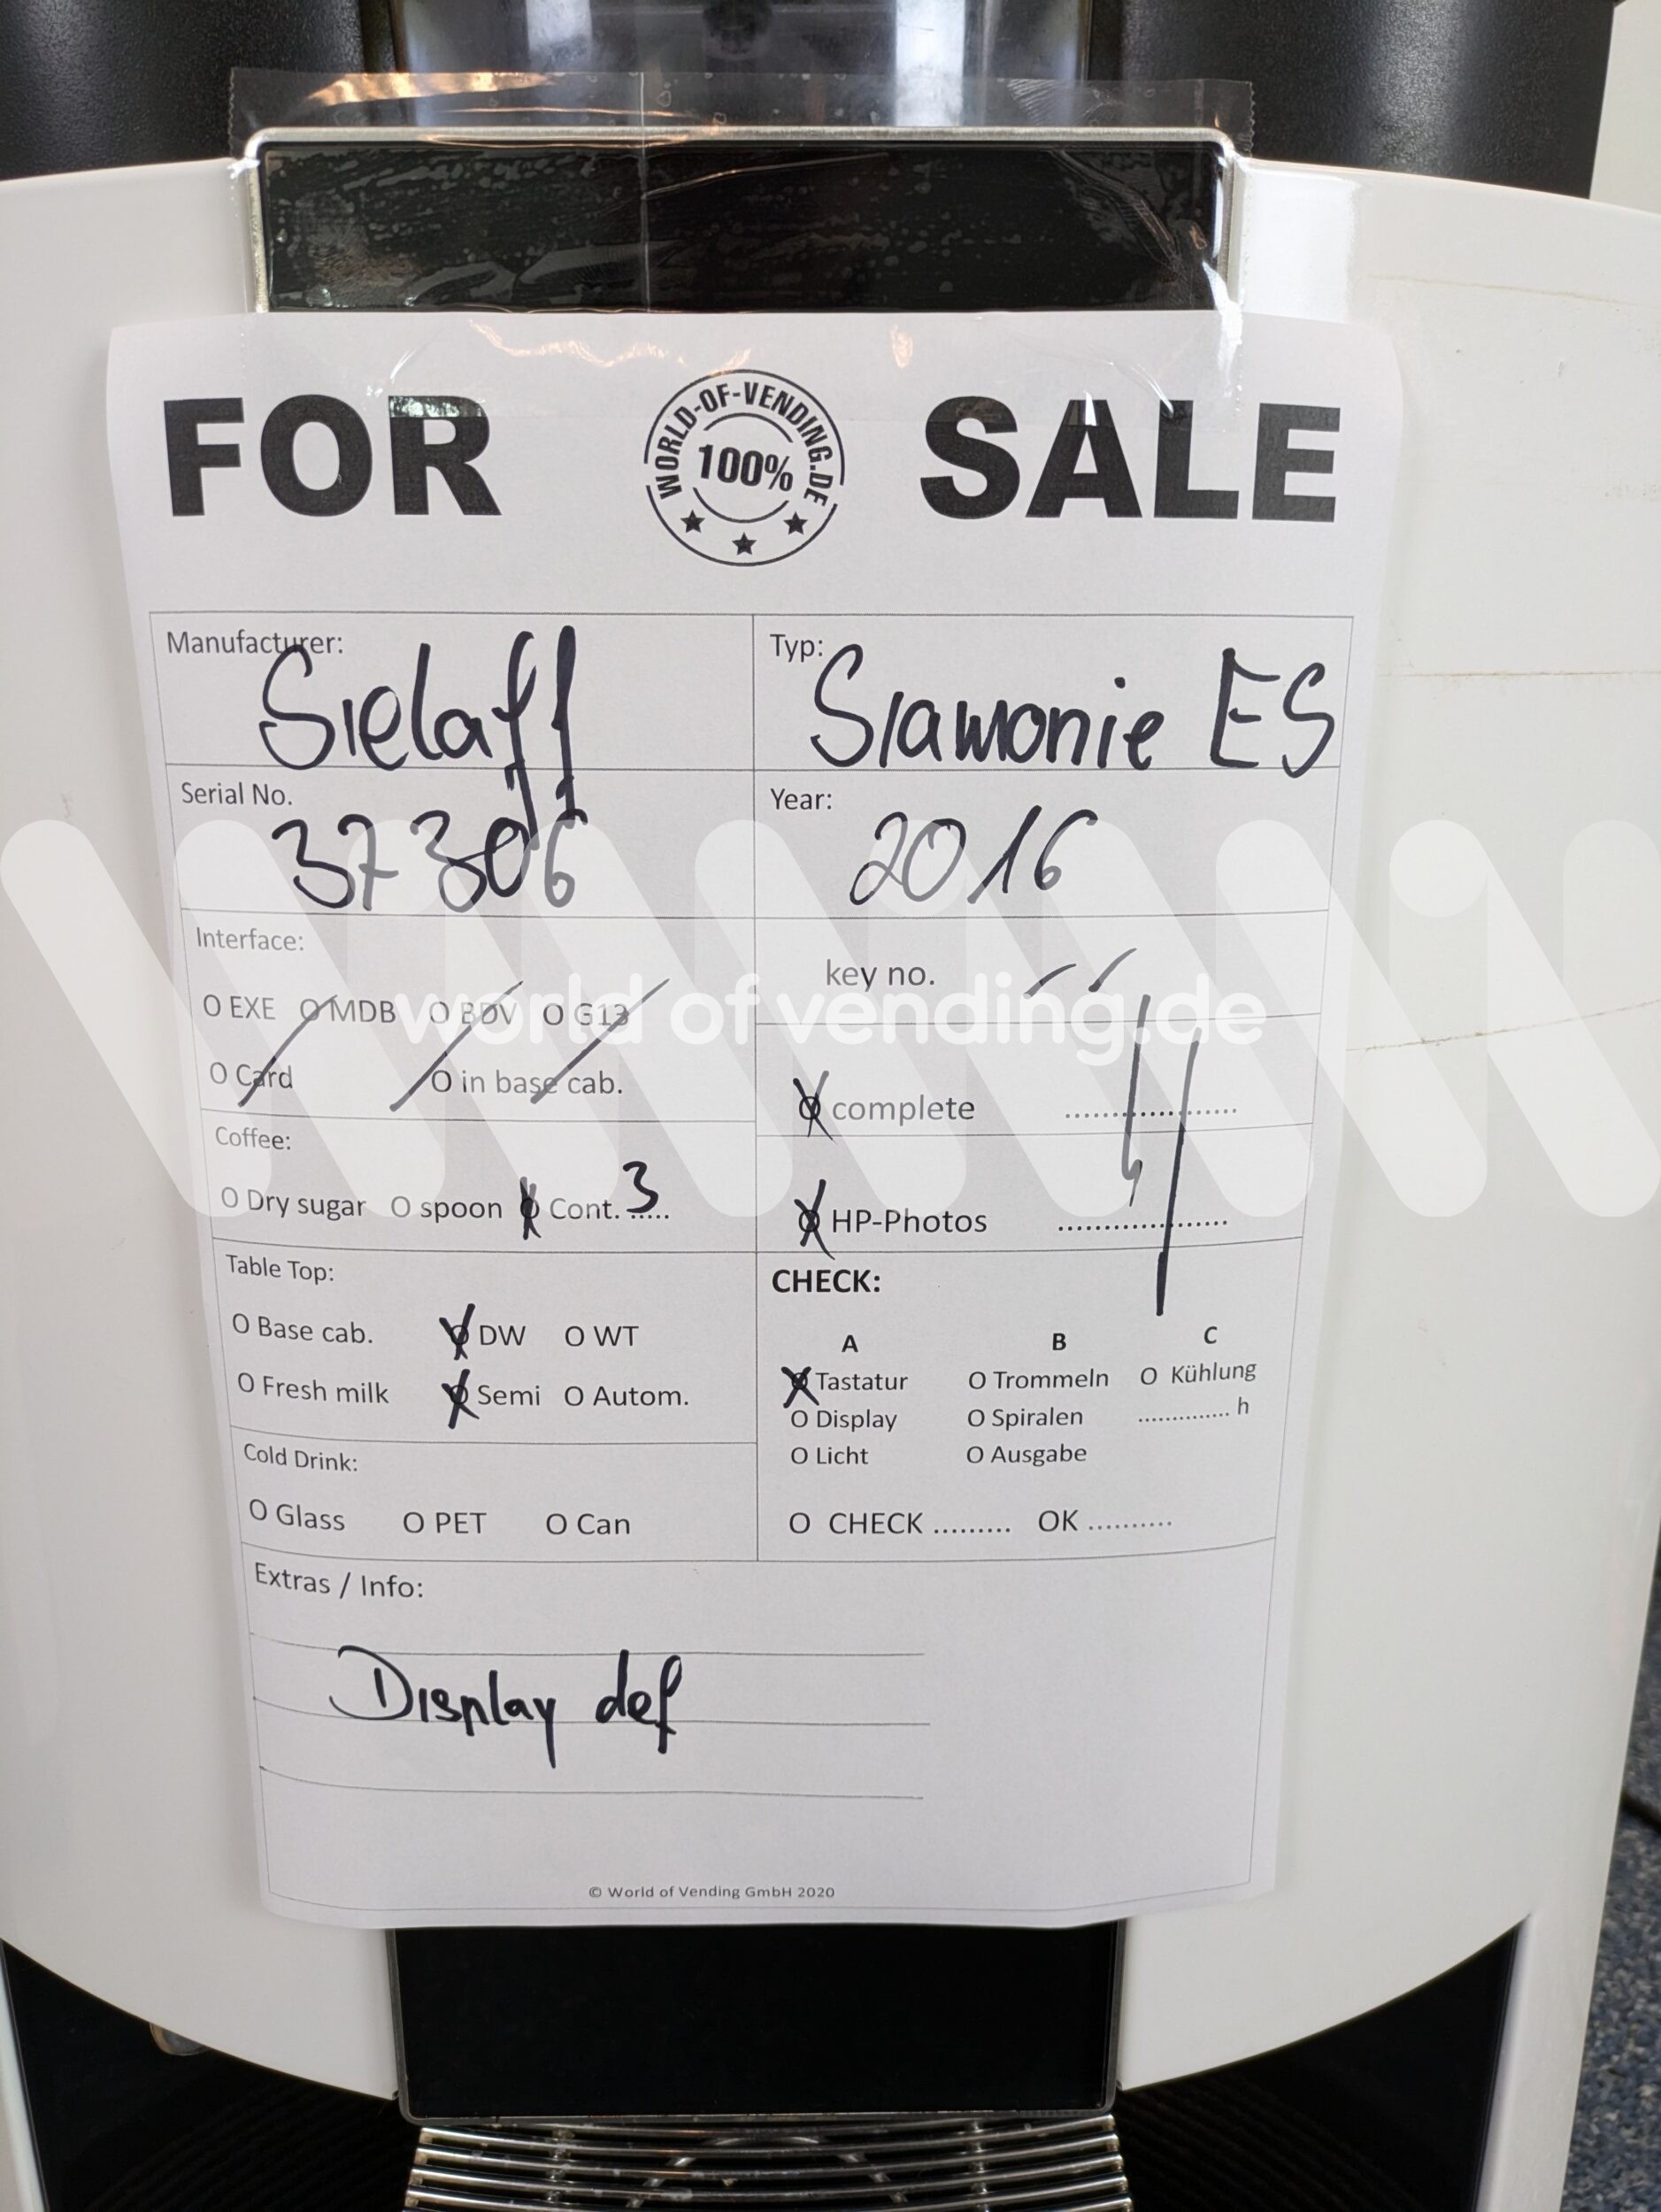 FOR SALE
WORLD-OF-VENDING.DE
100%
Manufacturer: Sielaff
Typ: Siamonie ES
Serial No. 37306
Year: 2016
Interface:
O EXE O MDB O BDV O G13
O Card O in base cab.
key no.
O complete ....................
O HP-Photos ....................
Coffee:
O Dry sugar O spoon O Cont. 3
Table Top:
O Base cab. O DW O WT
O Fresh milk O Semi O Autom.
Cold Drink:
O Glass O PET O Can
CHECK:
A B C
O Tastatur O Trommeln O Kühlung
O Display O Spiralen .............. h
O Licht O Ausgabe
O CHECK ......... OK ..........
Extras / Info:
Display def
© World of Vending GmbH 2020
world of vending.de